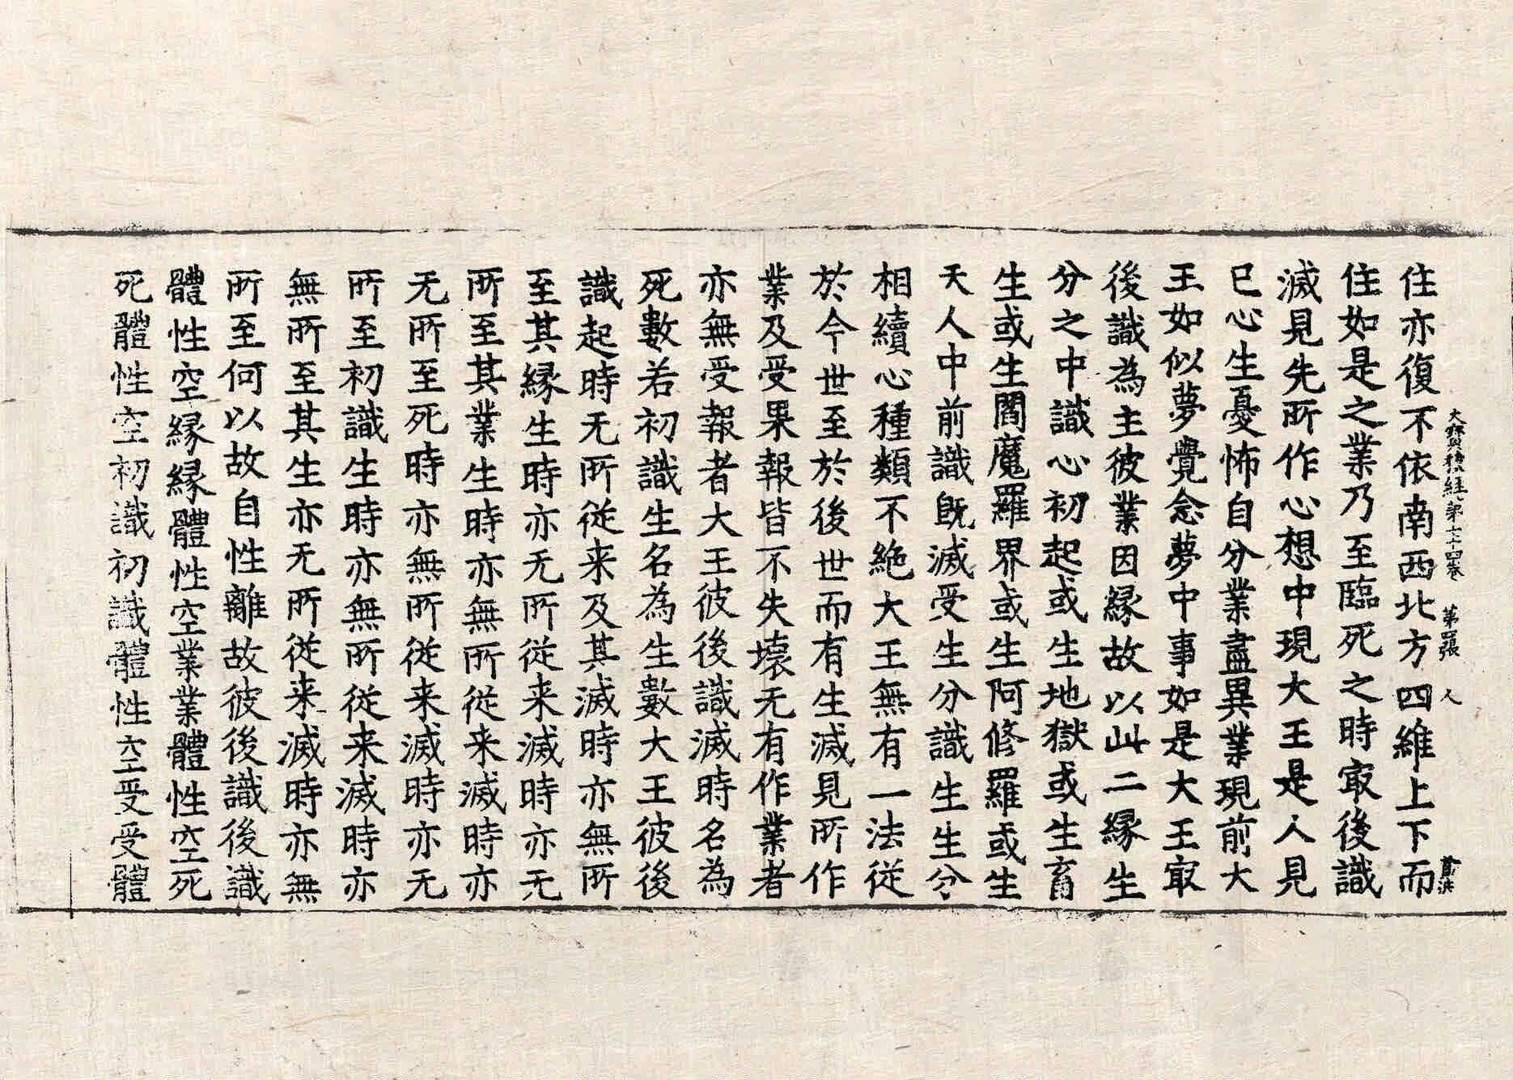 大寶積經第七十四卷 第四張 人
住亦復不依南西北方四維上下而
住如是之業乃至臨死之時㝡後識
滅見先所作心想中現大王是人見
已心生憂怖自分業盡異業現前大
王如似夢覺念夢中事如是大王㝡
後識為主彼業因縁故以此二縁生
分之中識心初起或生地獄或生畜
生或生閻魔羅界或生阿修羅或生
天人中前識旣滅受生分識生生分
相續心種類不絶大王無有一法従
於今世至於後世而有生滅見所作
業及受果報皆不失壞无有作業者
亦無受報者大王彼後識滅時名為
死數若初識生名為生數大王彼後
識起時无所従来及其滅時亦無所
至其縁生時亦无所従来滅時亦无
所至其業生時亦無所従来滅時亦
无所至死時亦無所従来滅時亦无
所至初識生時亦無所従来滅時亦
無所至其生亦无所従来滅時亦無
所至何以故自性離故彼後識後識
體性空縁縁體性空業業體性空死
死體性空初識初識體性空受受體